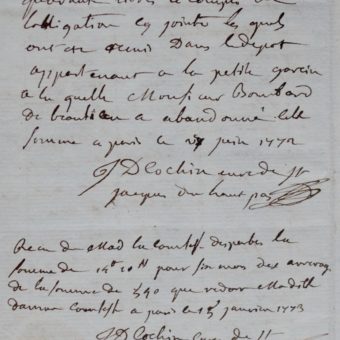 obligation cy jointe les quels
ont été remis Dans le depot
appartenant a la petite garcin
a la quelle Monsieur Bombard
De beaulieu a abandonné cette
somme a paris ce juin 1772
JD Cochin curé de St
jacques du haut pas
Recu de Mad la comtesse desparbes la
somme de pour six mois des arrerag
de la somme de 540 que redoit Madite
dame comtesse a paris ce 15 janvier 1773
JD Cochin Curé de St